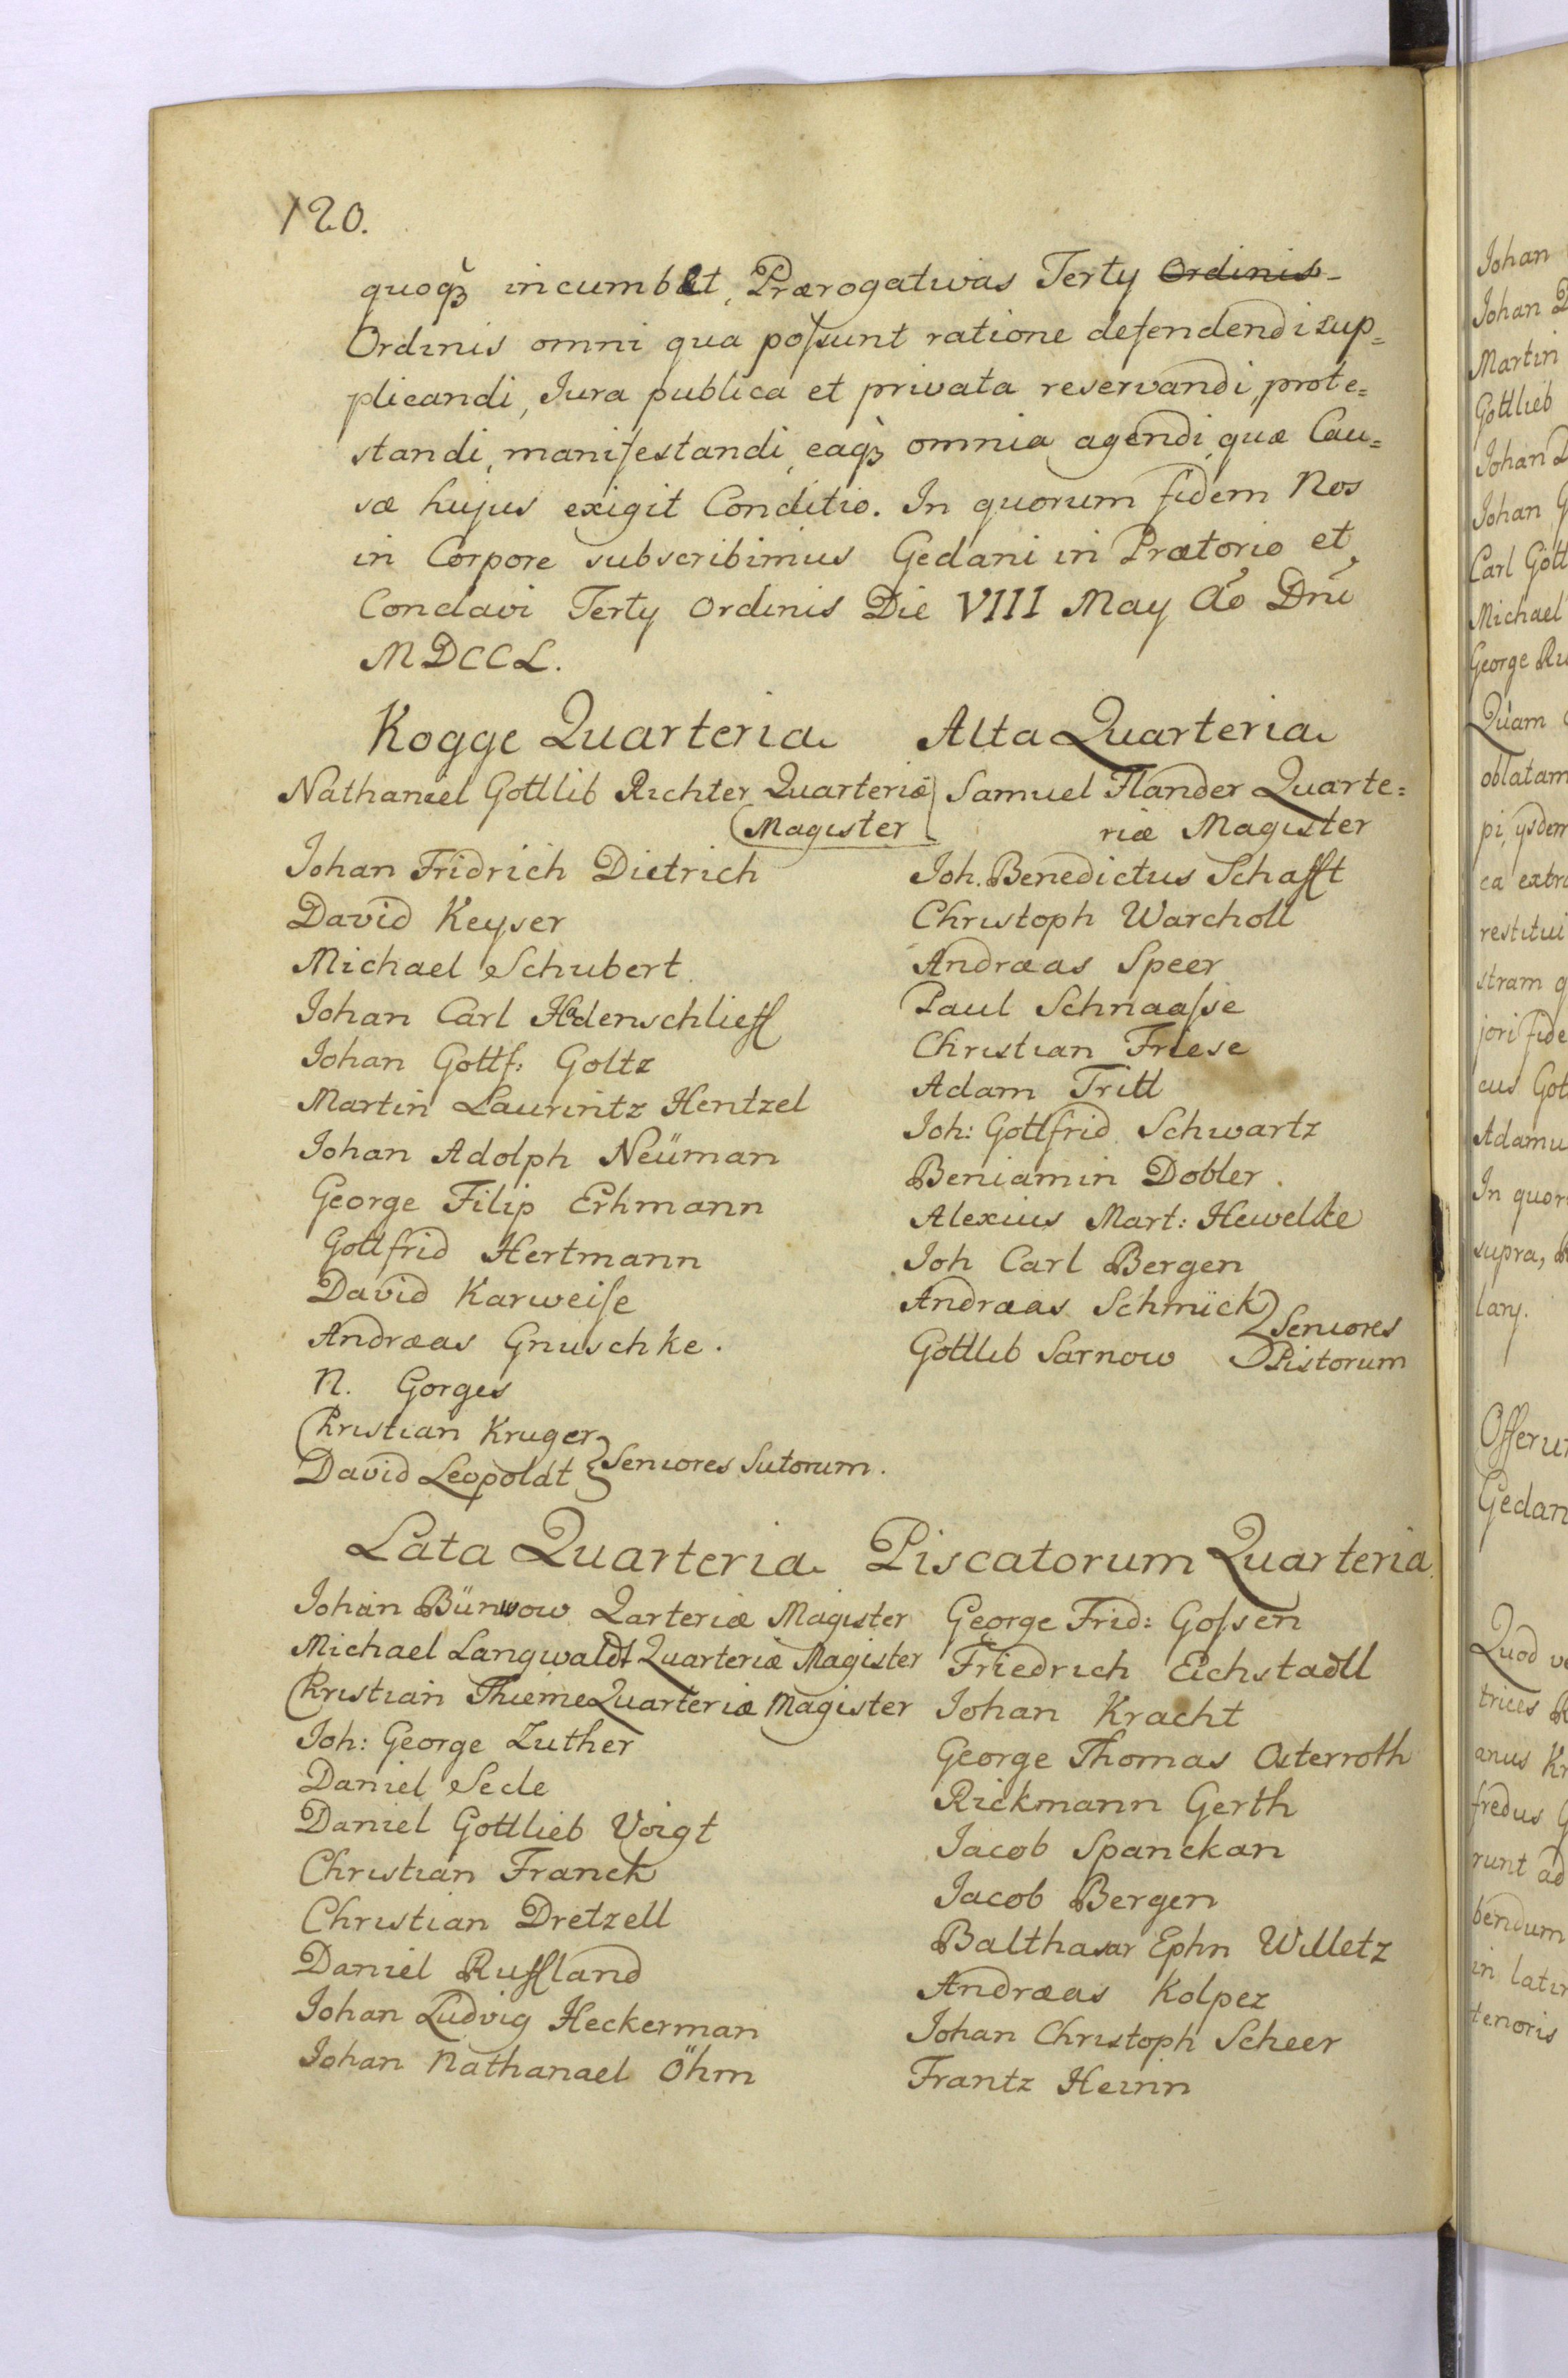 120.
quoqꝫ incumbet, Prærogativas Terty Ordinis
Ordinis omni qua poſsunt ratione defendendi sup=
plicandi, Jura publica et privata reservandi, prote=
standi, manifestandi, eaqꝫ omnia agendi, quæ Cau=
sæ hujus exigit Conditio. In quorum fidem Nos
in Corpore subscribimus Gedani in Prætorio et
Conclavi Terty Ordinis Die VIII May Aõ Dnĩ
MDCCL.
Kogge Quarteria
Nathaniel Gottlib Richter Quarteriæ
Magister
Johan Fridrich Dietrich
David Keyser
Michael Schubert
Johan Carl Hadenschlieff
Johan Gottf: Goltz
Martin Laurintz Hentzel
Johan Adolph Neüman
George Filip Erhmann
Gottfrid Hertmann
David Karweiſe
Andræas Gnuschke.
N. Gorges
Christian Kruger
David Leopoldt } Seniores Sutorum.
Alta Quarteria
Samuel Flander Quarte=
riæ Magister
Joh. Benedictus Schafft
Christoph Warcholl
Andræas Speer
Paul Schnaaſse
Christian Friese
Adam Tritt
Joh: Gottfrid Schwartz
Beniamin Dobler.
Alexius Mart: Hewelke
Joh Carl Bergen
Andræas Schmück
Gottlib Sarnow } Seniores Pistorum
Lata Quarteria
Johan Bünsow Qarteriæ Magister
Michael Langwaldt Quarteriæ Magister
Christian Thieme Quarteriæ Magister
Joh: George Zuther
Daniel Sede
Daniel Gottlieb Voigt
Christian Franck
Christian Dretzell
Daniel Ruffland
Johan Ludvig Heckerman
Johan Nathanael Öhm
Piscatorum Quarteria.
George Frid: Goſsen
Friedrich Eichstadtl
Johan Kracht
George Thomas Osterroth
Rickmann Gerth
Jacob Spanckan
Jacob Bergen
Balthasar Ephn Willetz
Andræas Kolpez
Johan Christoph Scheer
Frantz Heinn
Johan
Johan
Martin
Gottlieb
Johan
Johan
Carl
Michael
George
Quam
oblatam
pi, ysdem
ea
restitui
stram
jori
cus
In
supra,
Quod
trices
anus
fredus
runt ad
bendum
in
tenoris